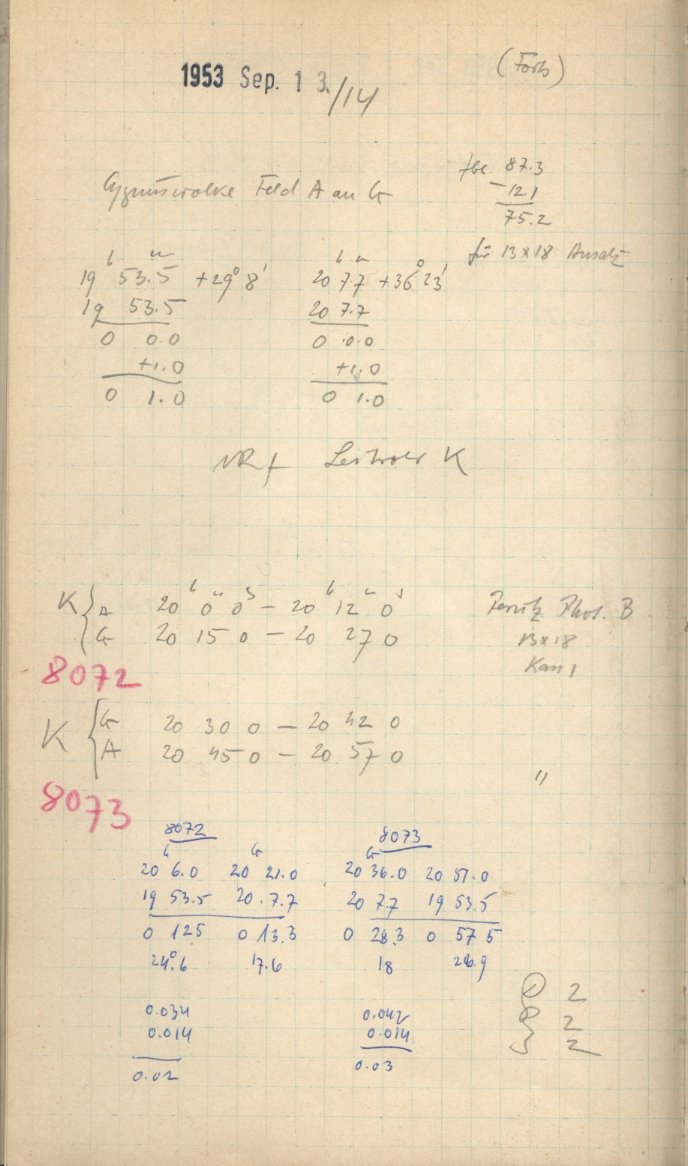 1953 Sep. 1 3./14
(Forts)
Cygnuswolke Feld A an G
87.3
- 12.1
75.2
für 13x18 Ansatz
19h 53.5m +29° 8'
19 53.5
0 0.0
+1.0
0 1.0
20h 7.7m +36° 23'
20 7.7
0 0.0
+1.0
0 1.0
K
K { A 20h 0m 0s – 20h 12m 0s
G 20 15 0 – 20 27 0
8072
Phot. B
13x18
K { G 20 30 0 – 20 42 0
A 20 45 0 – 20 57 0
"
8073
8072
20 6.0
19 53.5
0 12.5
24°.6
0.034
0.014
0.02
G
20 21.0
20 7.7
0 13.3
17.6
8073
G
20 36.0
20 7.7
0 28.3
18
0.042
0.014
0.03
20 51.0
19 53.5
0 57 5
26.9
2
2
2